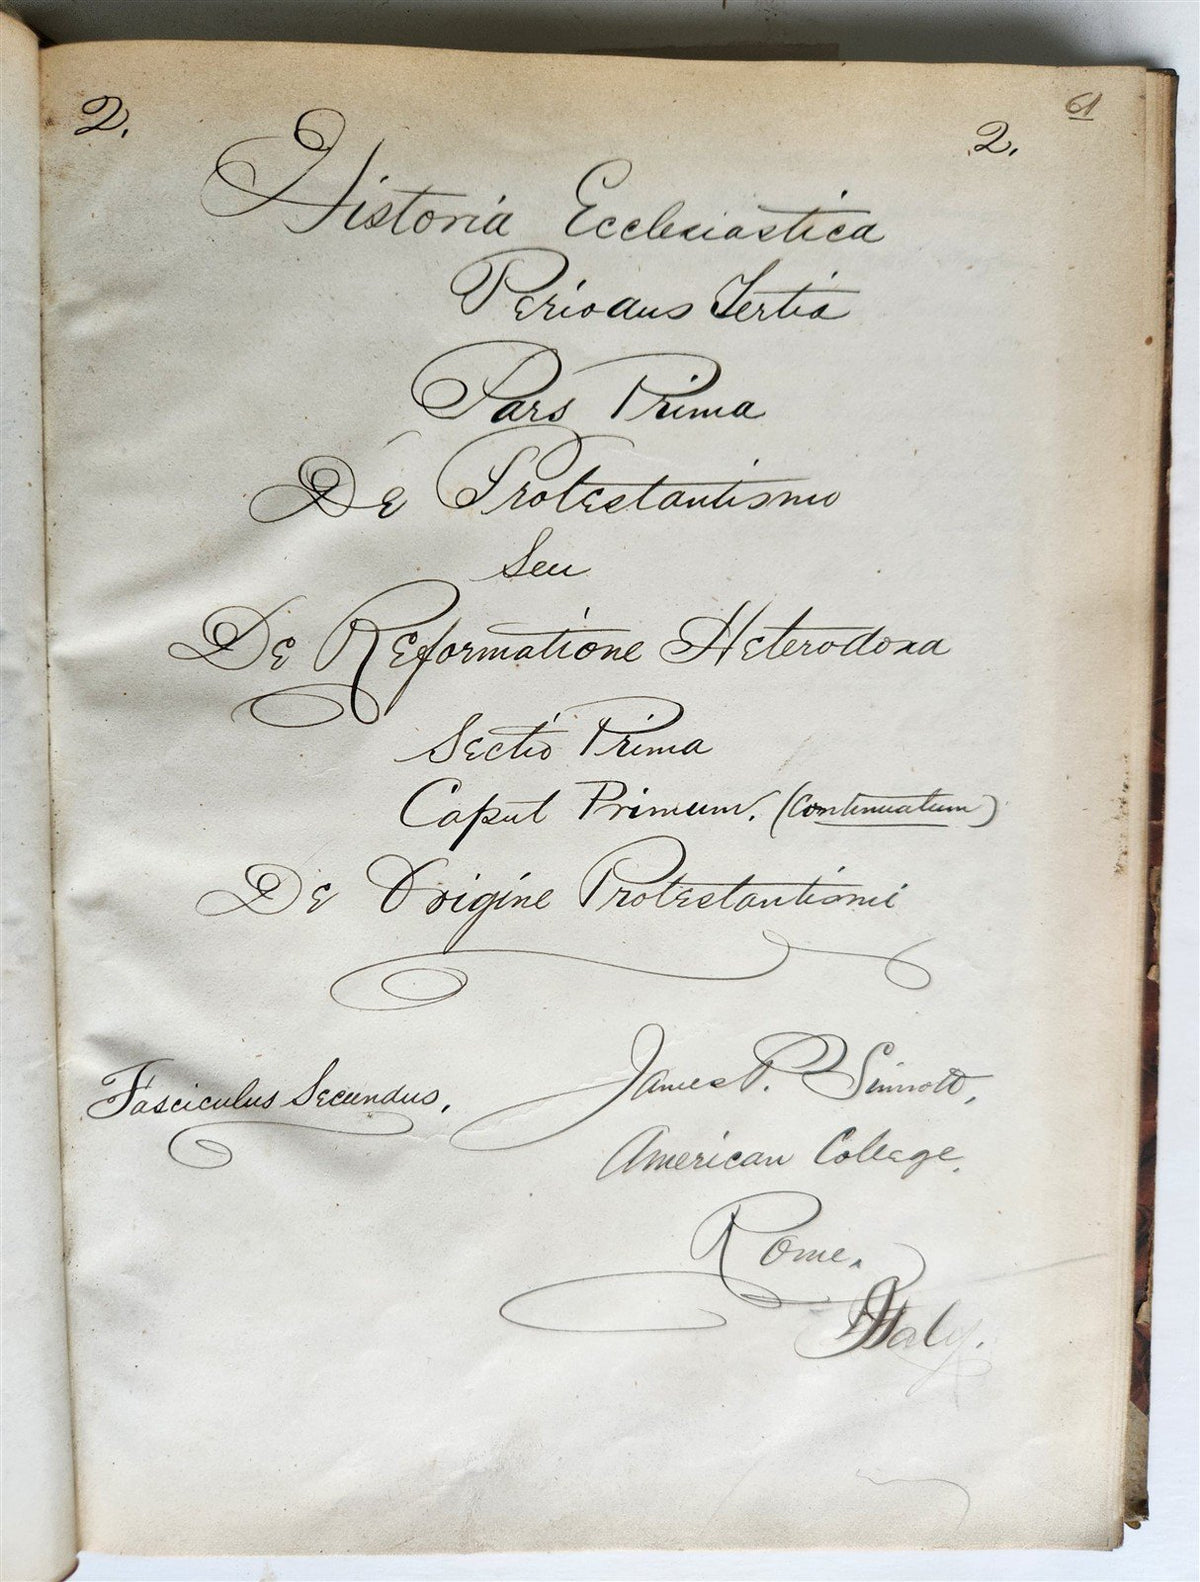 2. 2. 61
Historia Ecclesiastica
Periodus Tertia
Pars Prima
De Protestantismo
Seu
De Reformatione Heterodoxa
Sectio Prima
Caput Primum. (Continuatum)
De Origine Protestantismi
Fasciculus Secundus,
James P. Sinnott,
American College,
Rome,
Italy.